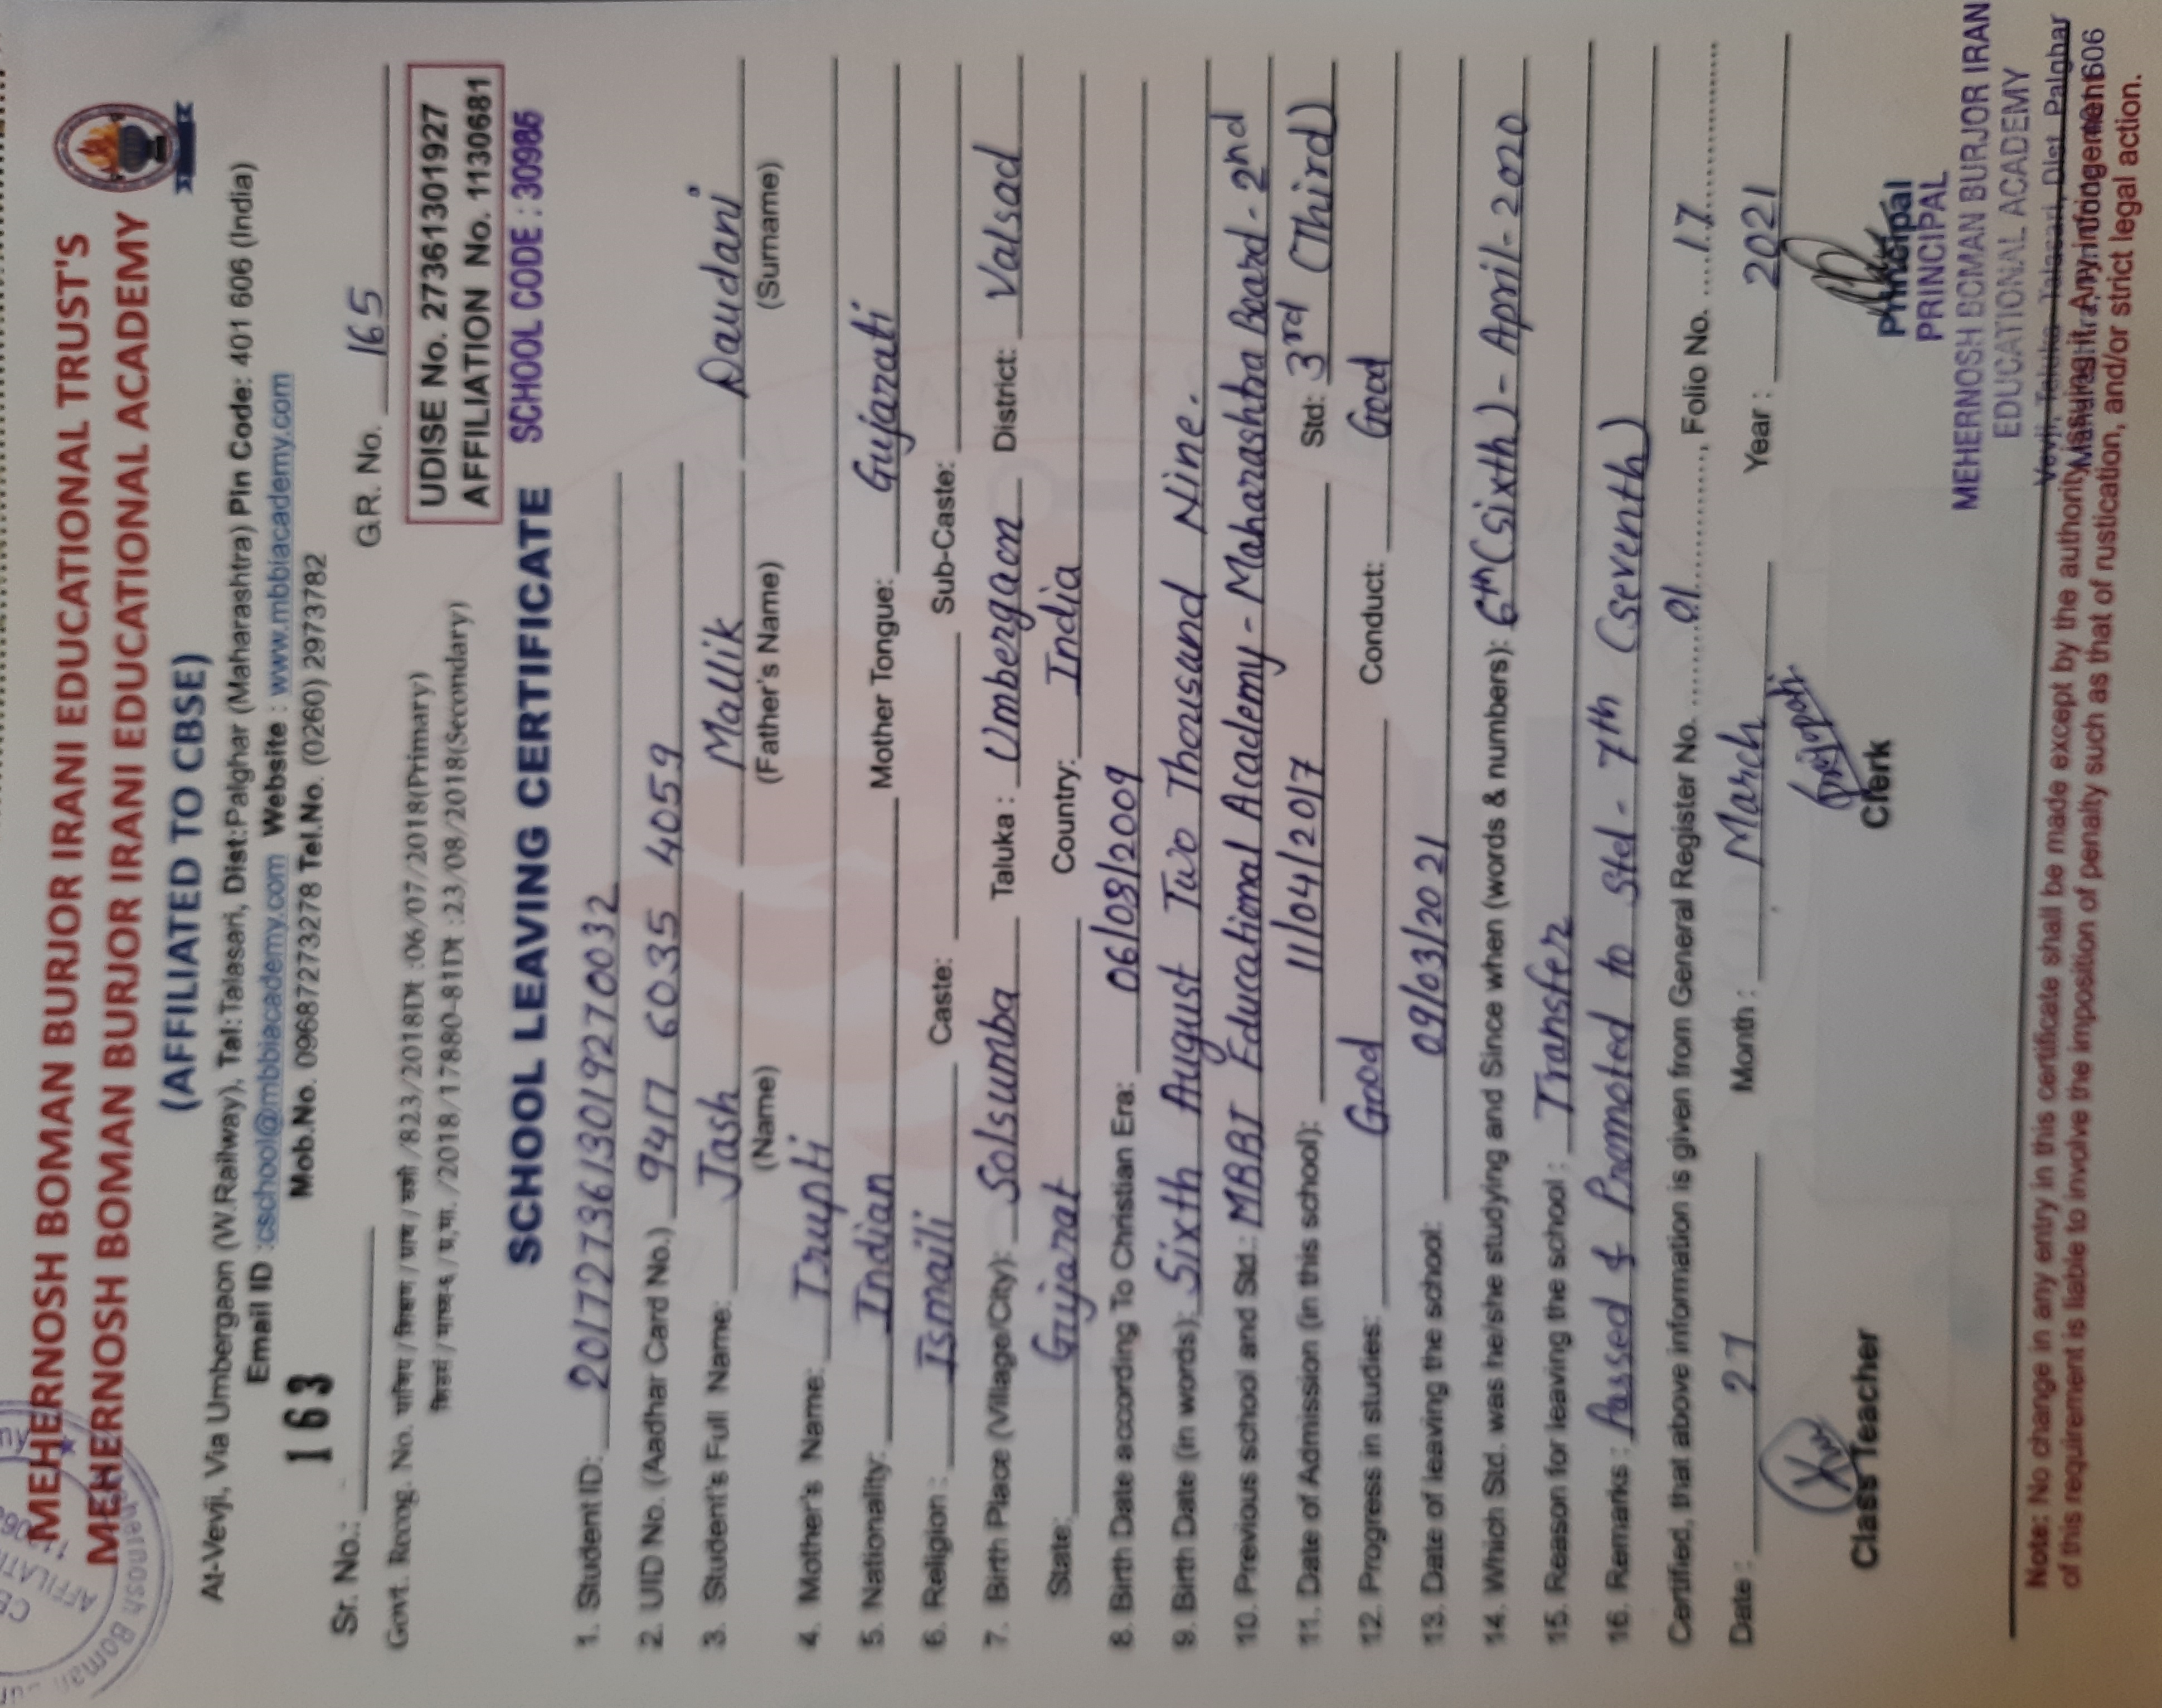 MEHERNOSH BOMAN BURJOR IRANI EDUCATIONAL TRUST'S
MEHERNOSH BOMAN BURJOR IRANI EDUCATIONAL ACADEMY
(AFFILIATED TO CBSE)
At-Vevji, Via Umbergaon (W.Railway), Tal:Talasari, Dist:Palghar (Maharashtra) Pin Code: 401 606 (India)
Email ID :cschool@mbbiacademy.com Website : www.mbbiacademy.com
Mob.No. 09687273278 Tel.No. (0260) 2973782
Sr. No.: 163 G.R. No. 165
Govt. Recog. No. /823/2018Dt :06/07/2018(Primary)
/2018/17880-81Dt :23/08/2018(Secondary)
UDISE No. 27361301927
AFFILIATION No. 1130681
SCHOOL LEAVING CERTIFICATE SCHOOL CODE : 30986
1. Student ID: 2017273613019270032
2. UID No. (Aadhar Card No.) 9417 6035 4059
3. Student's Full Name: Jash Mallik Daudani
(Name) (Father's Name) (Surname)
4. Mother's Name: Trupti
5. Nationality: Indian Mother Tongue: Gujarati
6. Religion : Ismaili Caste: Sub-Caste:
7. Birth Place (Village/City): Solsumba Taluka : Umbergaon District: Valsad
State: Gujarat Country: India
8. Birth Date according To Christian Era: 06/08/2009
9. Birth Date (in words): Sixth August Two Thousand Nine.
10. Previous school and Std.: MBBI Educational Academy - Maharashtra Board - 2nd
11. Date of Admission (in this school): 11/04/2017 Std: 3rd (Third)
12. Progress in studies: Good Conduct: Good
13. Date of leaving the school: 09/03/2021
14. Which Std. was he/she studying and Since when (words & numbers): 6th (Sixth) - April - 2020
15. Reason for leaving the school : Transfer
16. Remarks : Passed & Promoted to Std - 7th (Seventh)
Certified, that above information is given from General Register No. ........01........, Folio No. .....17........
Date : 27 Month : March Year : 2021
Class Teacher Clerk Principal
PRINCIPAL
MEHERNOSH BOMAN BURJOR IRANI
EDUCATIONAL ACADEMY
Vevji, Taluka Talasari, Dist. Palghar
606
Note: No change in any entry in this certificate shall be made except by the authority issuing it. Any infringement
of this requirement is liable to involve the imposition of penalty such as that of rustication, and/or strict legal action.